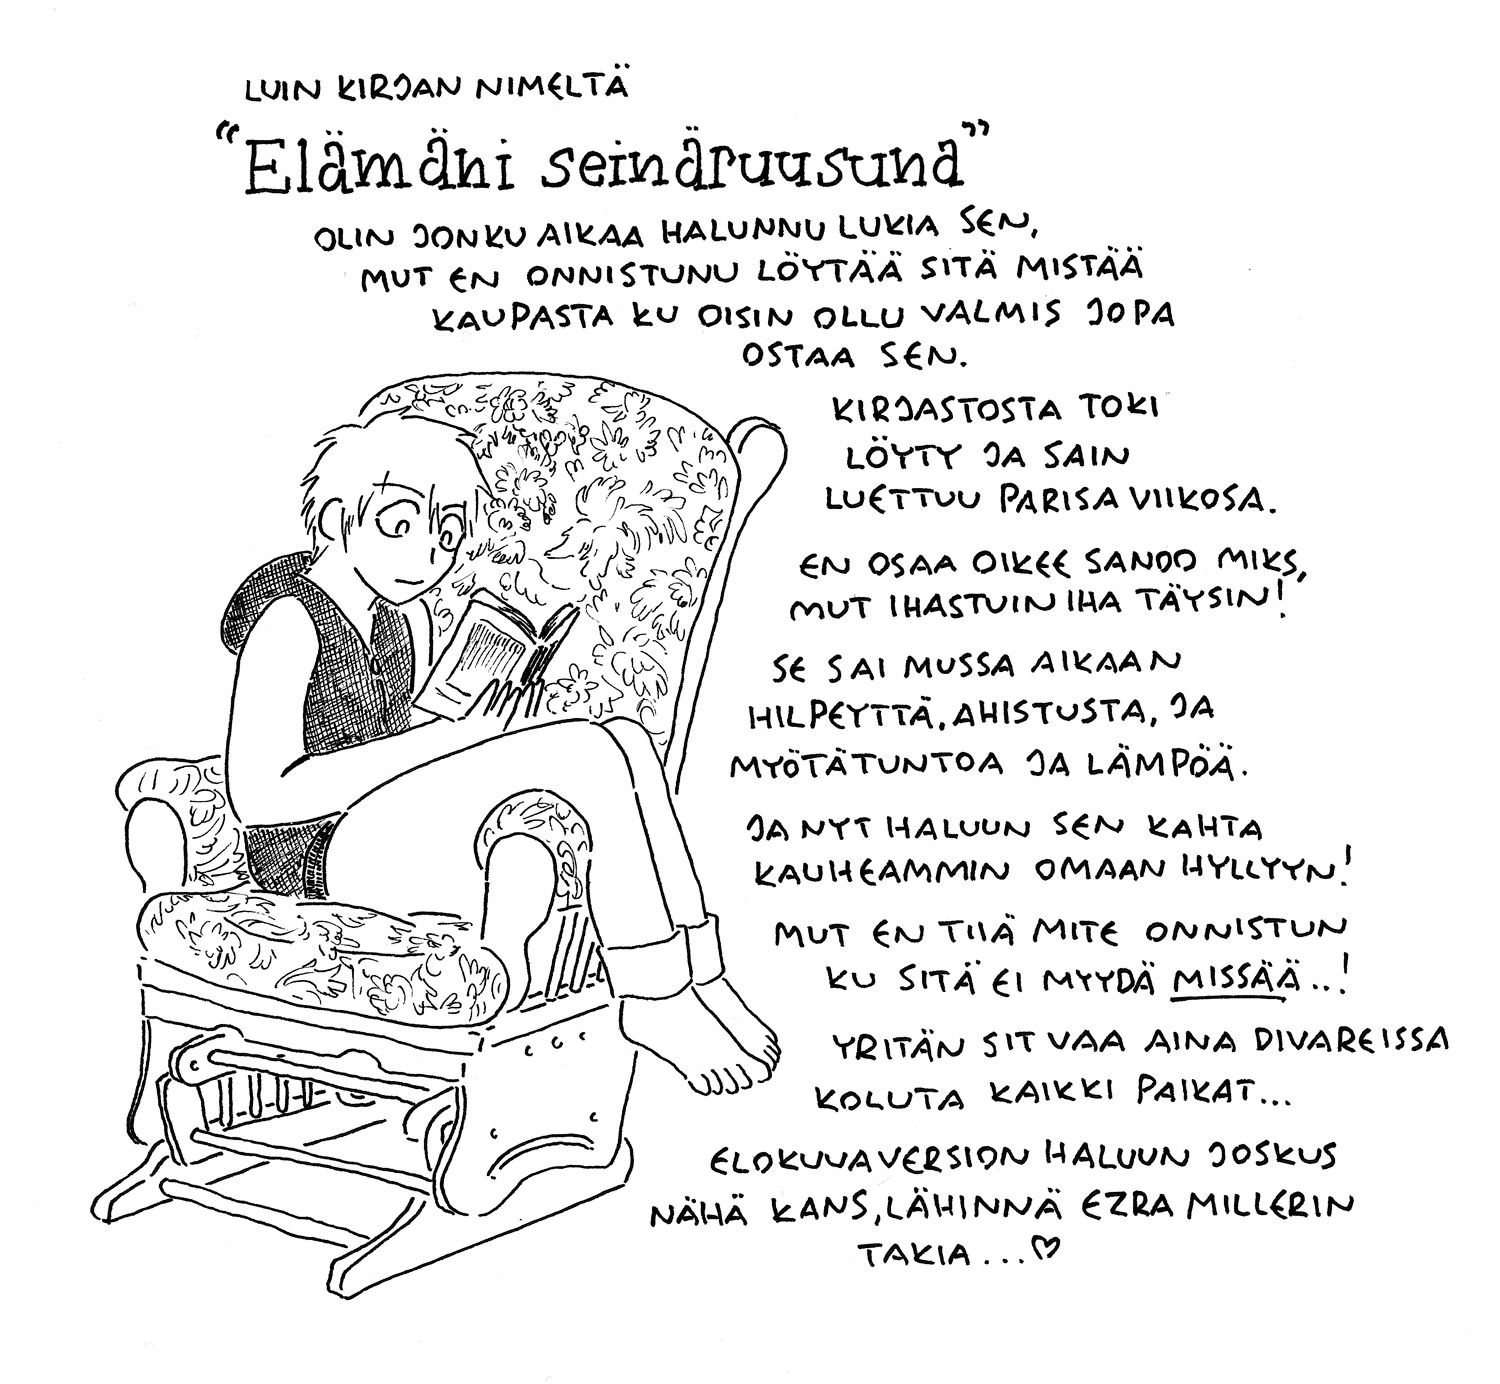 LUIN KIRJAN NIMELTÄ
"Elämäni seinäruusuna"
OLIN JONKU AIKAA HALUNNU LUKIA SEN,
MUT EN ONNISTUNU LÖYTÄÄ SITÄ MISTÄÄ
KAUPASTA KU OISIN OLLU VALMIS JOPA
OSTAA SEN.
KIRJASTOSTA TOKI
LÖYTY JA SAIN
LUETTUU PARISA VIIKOSA.
EN OSAA OIKEE SANOO MIKS,
MUT IHASTUIN IHA TÄYSIN!
SE SAI MUSSA AIKAAN
HILPEYTTÄ, AHISTUSTA, JA
MYÖTÄTUNTOA JA LÄMPÖÄ.
JA NYT HALUUN SEN KAHTA
KAUHEAMMIN OMAAN HYLLYYN!
MUT EN TIIÄ MITE ONNISTUN
KU SITÄ EI MYYDÄ MISSÄÄ..!
YRITÄN SIT VAA AINA DIVAREISSA
KOLUTA KAIKKI PAIKAT...
ELOKUVAVERSION HALUUN JOSKUS
NÄHÄ KANS, LÄHINNÄ EZRA MILLERIN
TAKIA...♡